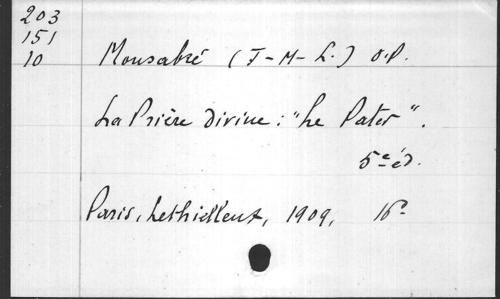 203
151
10
Monsabré (J-M-L.) O.P.
La Prière divine : "Le Pater".
5e éd.
Paris, Lethielleux, 1909, 16°